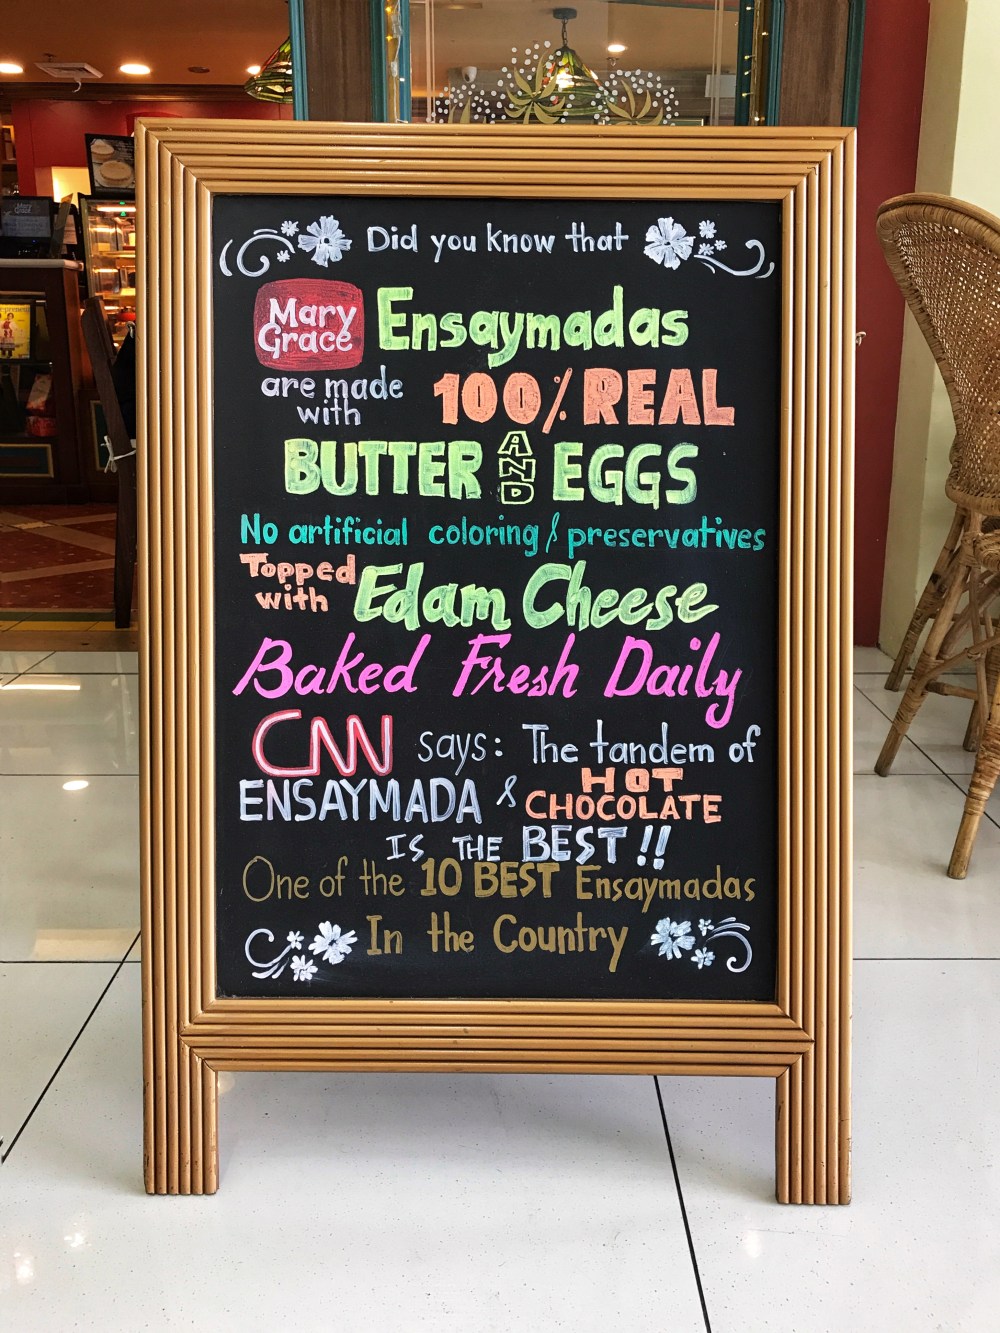 Did you know that
Mary Grace Ensaymadas
are made with 100% REAL
BUTTER AND EGGS
No artificial coloring & preservatives
Topped with Edam Cheese
Baked Fresh Daily
CNN says: The tandem of
ENSAYMADA & HOT CHOCOLATE
IS THE BEST!!
One of the 10 BEST Ensaymadas
In the Country